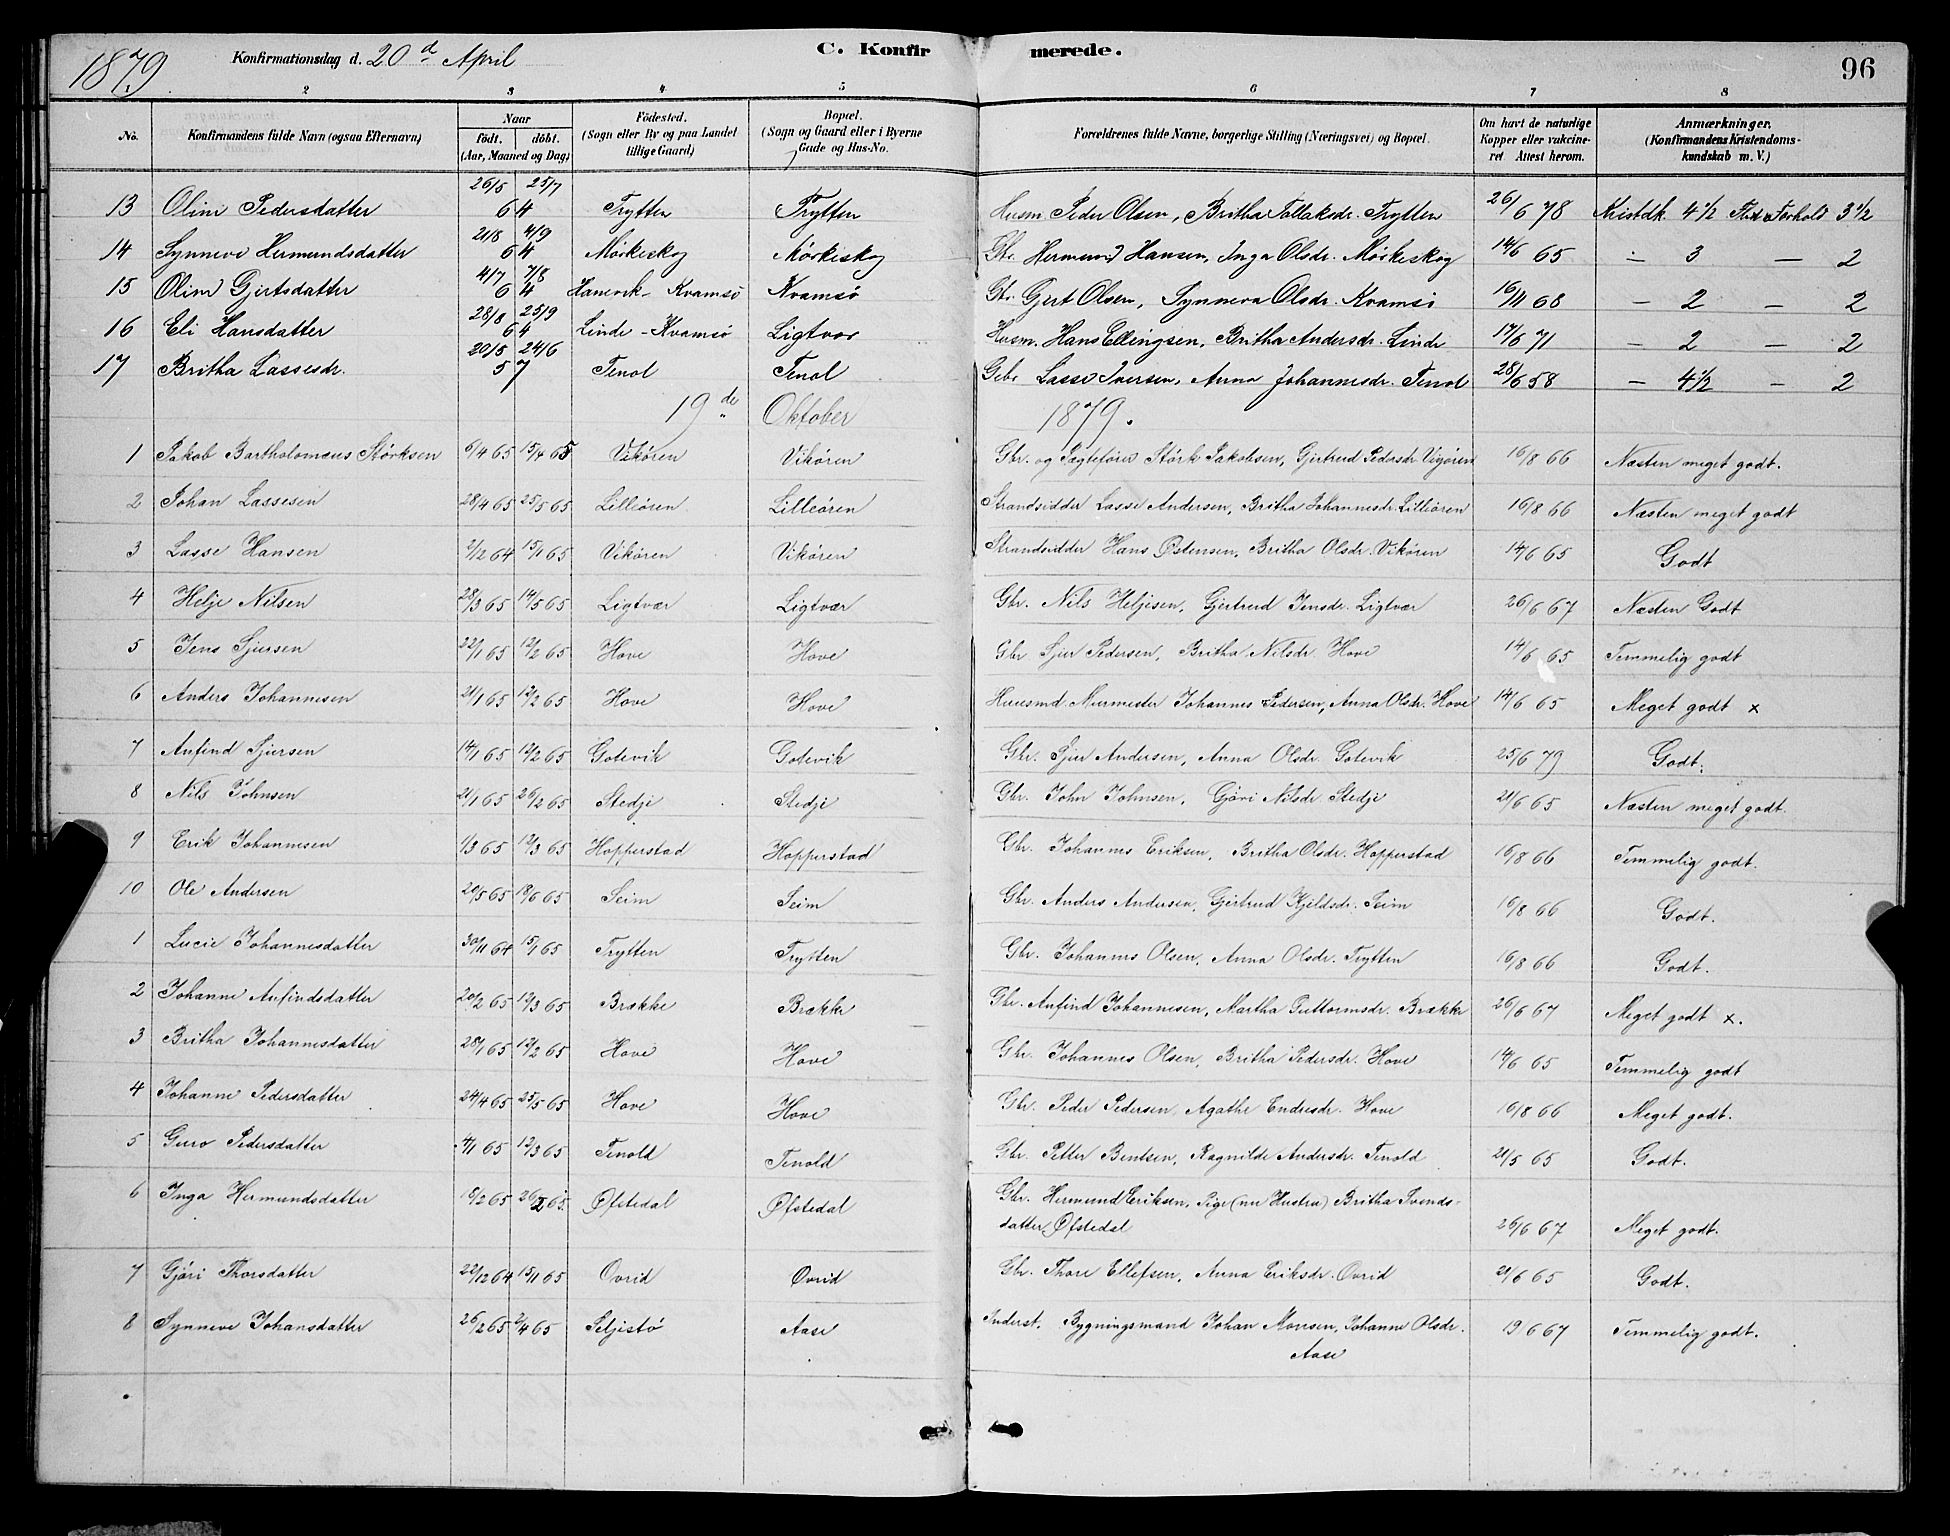 1879 Konfirmationsdag d. 20d April C. Konfirmerede. 96
2 3 4 5 6 7 8
No. Konfirmandens fulde Navn (ogsaa Efternavn) Naar født. døbt. (Aar, Maaned og Dag) Fødested. (Sogn eller By og paa Landet tillige Gaard) Bopæl. (Sogn og Gaard eller i Byerne Gade og Hus-No. Forældrenes fulde Navne, borgerlige Stilling (Næringsvei) og Bopæl. Om havt de naturlige Kopper eller vakcineret Attest herom. Anmærkninger. (Konfirmandens Kristendomskundskab m. V.)
13 Oline Pedersdatter 26/5 25/7 64 Trytten Trytten Husm. Peder Olsen, Britha Tollaksdr. Trytten 26/6 78 Kristdk. 4 1/2 Flid o Forhold 3 1/2
14 Synneve Hermundsdatter 21/8 4/9 64 Mørkeskog Mørkeskog Gbr. Hermund Hansen, Inga Olsdr. Mørkeskog 14/6 65 - 3 - 2
15 Oline Gjertsdatter 4/7 7/8 64 Hanevik - Kvamsø Kvamsø Gbr Gjert Olsen, Synneva Olsdr. Kvamsø 16/11 68 - 2 - 2
16 Eli Hansdatter 28/8 25/9 64 Linde - Kvamsø Ligtvor Husm. Hans Ellingsen, Britha Andersdr. Linde 17/6 71 - 2 - 2
17 Britha Lassesdr. 20/5 24/6 57 Tenol Tenol Gbr Lasse Iversen, Anna Johannesdr. Tenol 28/6 58 - 4 1/2 - 2
19de Oktober 1879.
1 Jakob Bartholomæus Størksen 6/4 65 15/4 65 Vikøren Vikøren Gbr. og Jægtefører Størk Jakobsen, Gjertrud Pedersdr. Vigøren 16/8 66 Næsten meget godt.
2 Johan Lassesen 28/4 65 25/5 65 Lilleøren Lilleøren Strandsidder Lasse Andersen, Britha Johannesdr. Lilleøren 16/8 66 Næsten meget godt
3 Lasse Hansen 2/12 64 15/1 65 Vikøren Vikøren Strandsidder Hans Østensen, Britha Olsdr. Vikøren 14/6 65 Godt
4 Helje Nilsen 28/3 65 14/5 65 Ligtvær Ligtvær Gbr. Nils Heljesen, Gjertrud Jensdr. Ligtvær 26/6 67 Næsten Godt
5 Jens Sjursen 22/1 65 12/2 65 Hove Hove Gbr Sjur Pedersen, Britha Nilsdr. Hove 14/6 65 Temmelig godt
6 Anders Johannesen 21/1 65 12/2 65 Hove Hove Huusmd. Murmester Johannes Pedersen, Anna Olsdr. Hove 14/6 65 Meget godt x
7 Anfind Sjursen 14/1 65 12/2 65 Gotevik Gotevik Gbr. Sjur Andersen, Anna Olsdr. Gotevik 25/6 79 Godt.
8 Nils Johnsen 21/1 65 26/2 65 Stedje Stedje Gbr. John Johnsen, Gjøri Nilsdr. Stedje 21/6 65 Næsten meget godt.
9 Erik Johannesen 1/3 65 12/3 65 Hopperstad Hopperstad Gbr. Johannes Eriksen, Britha Olsdr. Hopperstad 16/8 66 Temmelig godt.
10 Ole Andersen 20/5 65 18/6 65 Seim Seim Gbr. Anders Andersen, Gjertrud Kjeldsdr. Seim 16/8 66 Godt.
1 Lucie Johannesdatter 30/11 64 15/1 65 Trytten Trytten Gbr. Johannes Olsen, Anna Olsdr. Trytten 16/8 66 Godt.
2 Johanne Anfindsdatter 20/2 65 12/3 65 Brække Brække Gbr. Anfind Johannesen, Martha Guttormsdr. Brække 26/6 67 Meget godt x.
3 Britha Johannesdatter 28/1 65 12/2 65 Hove Hove Gbr. Johannes Olsen, Britha Pedersdr. Hove 14/6 65 Temmelig godt
4 Johanne Pedersdatter 24/4 65 25/5 65 Hove Hove Gbr. Peder Pedersen, Agathe Endresdr. Hove 16/8 66 Meget godt.
5 Guro Pedersdatter 4/1 65 12/3 65 Tenold Tenold Gbr. Petter Bentsen, Ragnilde Andersdr. Tenold 21/5 65 Godt.
6 Inga Hermundsdatter 18/2 65 26/2 65. Øfstedal Øfstedal Gbr. Hermund Eriksen, Pige (nu Hustru) Britha Svends-
datter, Øfstedal 26/6 67 Meget godt.
7 Gjøri Thorsdatter 22/12 64 15/1 65 Ovrid Øvrid Gbr. Thore Ellefsen, Anna Eriksdr. Ovrid 21/6 65 Godt.
8 Synneve Johansdatter 26/2 65 2/4 65 Seljestø Aase Inderst. Bygningsmand Johan Monsen, Johanne Olsdr.
Aase 19/6 67 Temmelig godt.